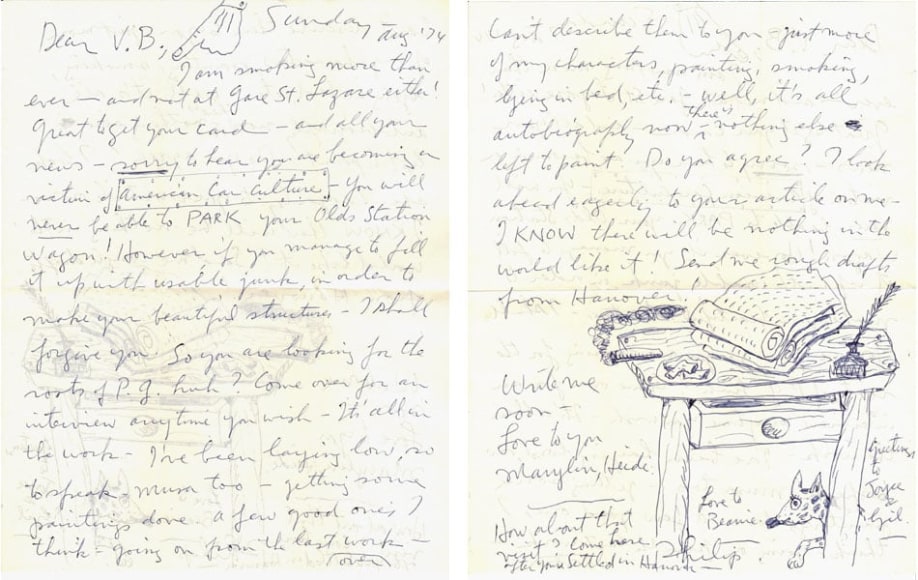 Sunday Aug '74
Dear V.B.,
I am smoking more than
ever — and not at Gare St. Lazare either!
Great to get your card — and all your
news — sorry to hear you are becoming a
victim of American Car Culture — You will
never be able to PARK your Olds Station
Wagon! However if you manage to fill
it up with usable junk, in order to
make your beautiful structures — I shall
forgive you. So you are looking for the
roots of P.G. huh? Come over for an
interview anytime you wish — It's all in
the work — I've been laying low, so
to speak — Musa too — getting some
paintings done — a few good ones I
think — going on from the last work —
over
Can't describe them to you — just more
of my characters, painting, smoking,
lying in bed, etc. — well, it's all
autobiography now — there's nothing else
left to paint. Do you agree? I look
ahead eagerly to your article on me —
I KNOW there will be nothing in the
world like it! Send me rough drafts
from Hanover!
Write me
soon —
Love to you
Marylin, Heide.
Love to
Beanie
Greetings
to
Joyce
&
Gil.
How about that
visit? Come here
after you're settled in Hanover —
Philip